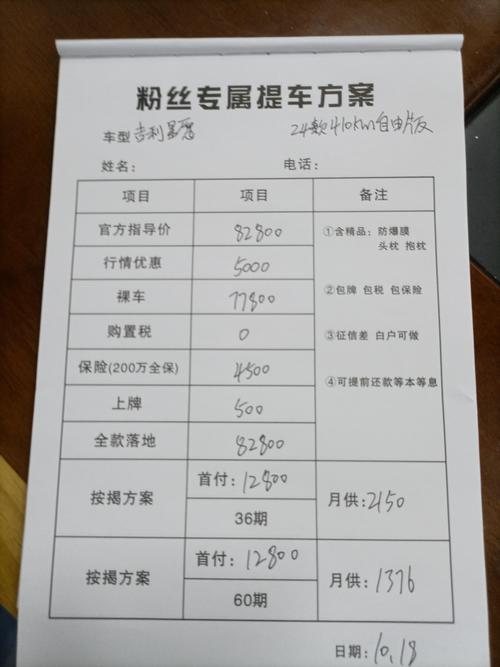 粉丝专属提车方案
车型 吉利星愿 24款410km自由版
姓名： 电话：
项目 项目 备注
官方指导价 82800
行情优惠 5000
裸车 77800
购置税 0
保险(200万全保) 4500
上牌 500
全款落地 82800
①含精品：防爆膜
头枕 抱枕
②包牌 包税 包保险
③征信差 白户可做
④可提前还款等本等息
按揭方案 首付：12800 月供：2150
36期
按揭方案 首付：12800 月供：1376
60期
日期：10.18